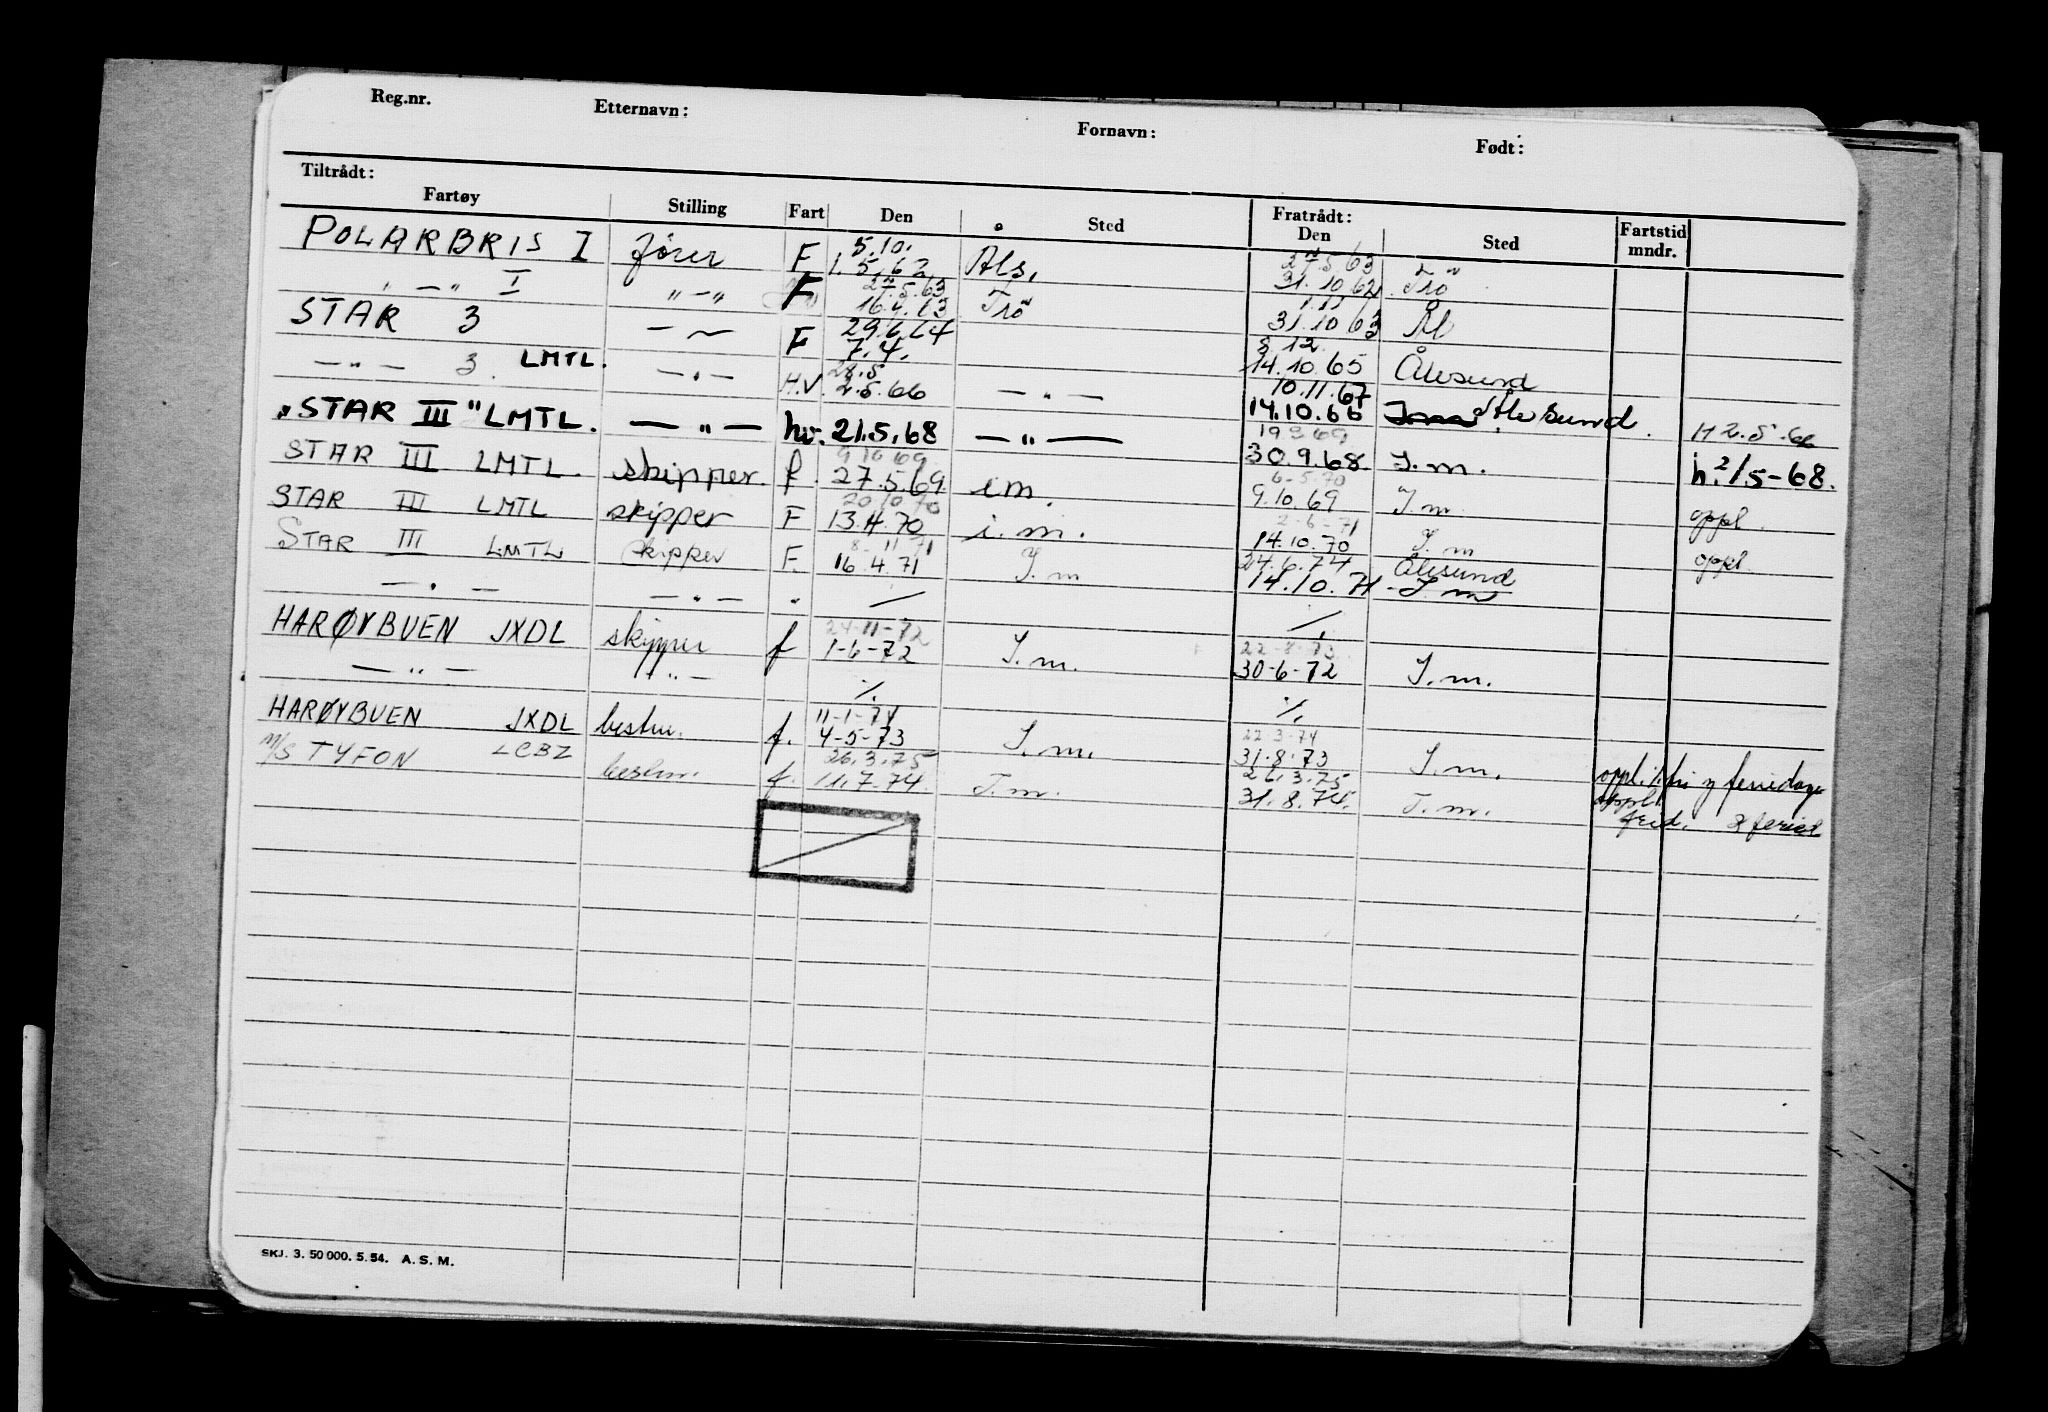 Reg.nr. Etternavn: Fornavn: Født:
Tiltrådt: Fratrådt:
Fartøy Stilling Fart Den Sted Den Sted Fartstid mndr.
POLARBRIS I fører F 5.10. 1.5.62 Als. 27.5.63 31.10.62 Trö
" — " I " — " F 27.5.63 16.4.63 Trö 1.11 31.10 63 Ål
STAR 3 — " — F 29.6.64 7.4. 8 12. 14.10.65 Ålesund
— " — 3. LMTL. — " — H.V. 28.5 2.5.66 — " — 10.11.67 14.10.66 Ålesund. H 2.5.66
"STAR III" LMTL. — " — hv. 21.5.68 — " — 30.9.68 I.m. h. 21/5-68.
STAR III LMTL. skipper. f. 27.5.69 i.m. 6-5.70 9.10.69 I.m. oppl.
STAR III LMTL skipper F 20 10 70 13.4.70 i.m. 2-6-71 14.10.70 I.m oppl.
STAR III LMTL skipper F. 8-11-71 16.4.71 I.m 24.6.74 14.10.71 Ålesund I m
— " — — " — " / /.
HARØYBUEN JXDL skipper f 24-11-72 1-6-72 I.m. 22-8-73 30-6-72 I.m.
— " — — " — /. /.
HARØYBUEN JXDL bestm. f. 11-1-74 4-5-73 I.m. 22 3.74 31.8.73 I.m. oppl. i. fri og feriedage
M/S TYFON LCBZ bestm. f. 26.3.75 11.7.74. I.m. 26.3.75 31.8.74. I.m. oppl. frid. & feried.
SKJ. 3. 50 000. 5. 54. A. S. M.